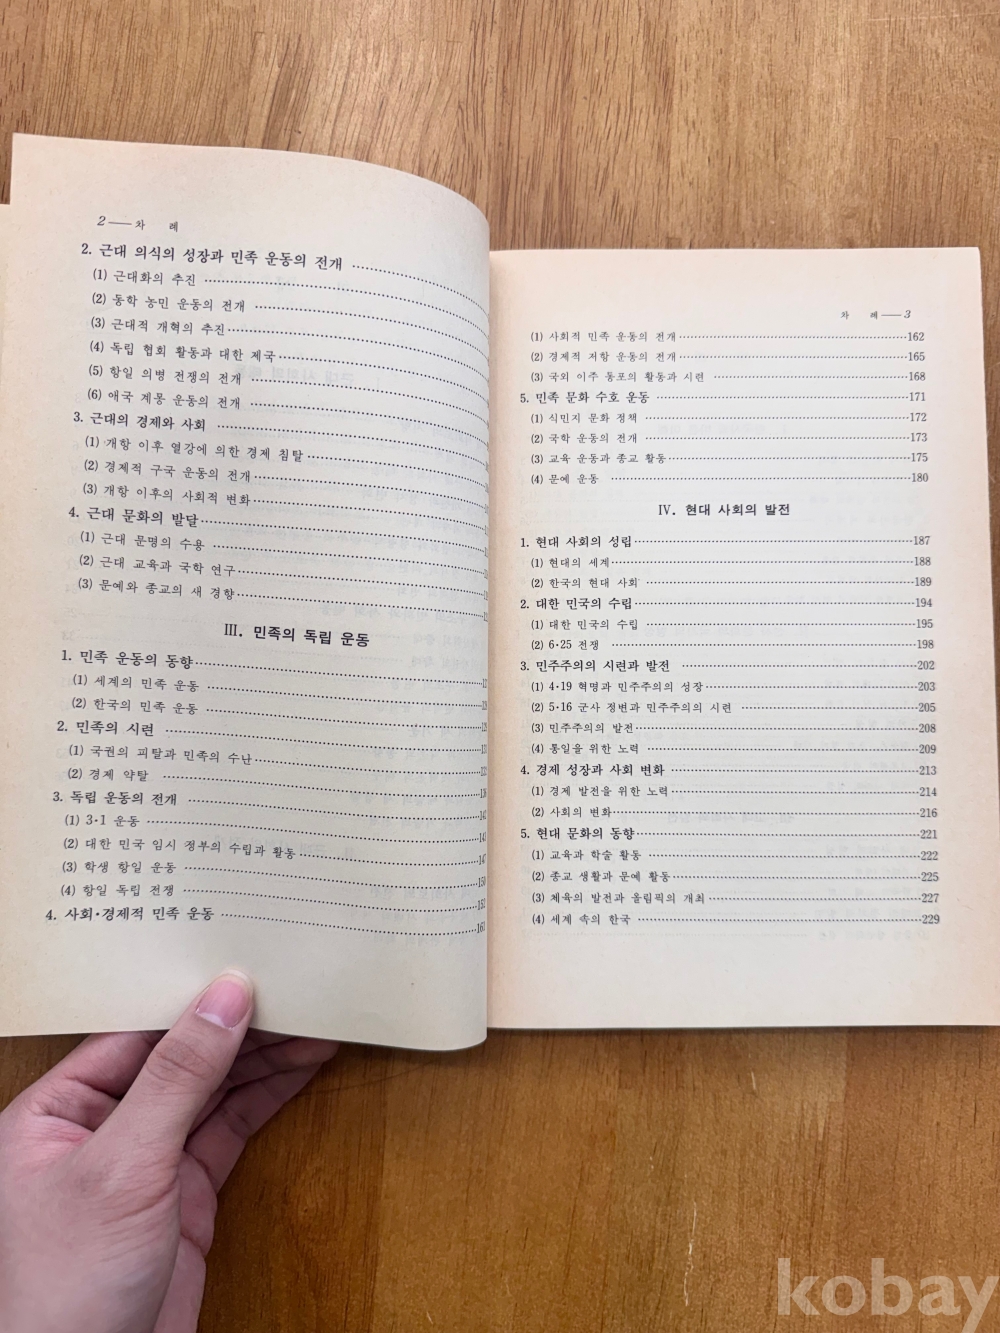 2 ── 차 례
2. 근대 의식의 성장과 민족 운동의 전개
(1) 근대화의 추진
(2) 동학 농민 운동의 전개
(3) 근대적 개혁의 추진
(4) 독립 협회 활동과 대한 제국
(5) 항일 의병 전쟁의 전개
(6) 애국 계몽 운동의 전개
3. 근대의 경제와 사회
(1) 개항 이후 열강에 의한 경제 침탈
(2) 경제적 구국 운동의 전개
(3) 개항 이후의 사회적 변화
4. 근대 문화의 발달
(1) 근대 문명의 수용
(2) 근대 교육과 국학 연구
(3) 문예와 종교의 새 경향
Ⅲ. 민족의 독립 운동
1. 민족 운동의 동향
(1) 세계의 민족 운동
(2) 한국의 민족 운동
2. 민족의 시련
(1) 국권의 피탈과 민족의 수난
(2) 경제 약탈
3. 독립 운동의 전개
(1) 3·1 운동
(2) 대한 민국 임시 정부의 수립과 활동 147
(3) 학생 항일 운동 150
(4) 항일 독립 전쟁 152
4. 사회·경제적 민족 운동 161
차 례 ── 3
(1) 사회적 민족 운동의 전개 162
(2) 경제적 저항 운동의 전개 165
(3) 국외 이주 동포의 활동과 시련 168
5. 민족 문화 수호 운동 171
(1) 식민지 문화 정책 172
(2) 국학 운동의 전개 173
(3) 교육 운동과 종교 활동 175
(4) 문예 운동 180
Ⅳ. 현대 사회의 발전
1. 현대 사회의 성립 187
(1) 현대의 세계 188
(2) 한국의 현대 사회 189
2. 대한 민국의 수립 194
(1) 대한 민국의 수립 195
(2) 6·25 전쟁 198
3. 민주주의의 시련과 발전 202
(1) 4·19 혁명과 민주주의의 성장 203
(2) 5·16 군사 정변과 민주주의의 시련 205
(3) 민주주의의 발전 208
(4) 통일을 위한 노력 209
4. 경제 성장과 사회 변화 213
(1) 경제 발전을 위한 노력 214
(2) 사회의 변화 216
5. 현대 문화의 동향 221
(1) 교육과 학술 활동 222
(2) 종교 생활과 문예 활동 225
(3) 체육의 발전과 올림픽의 개최 227
(4) 세계 속의 한국 229
kobay